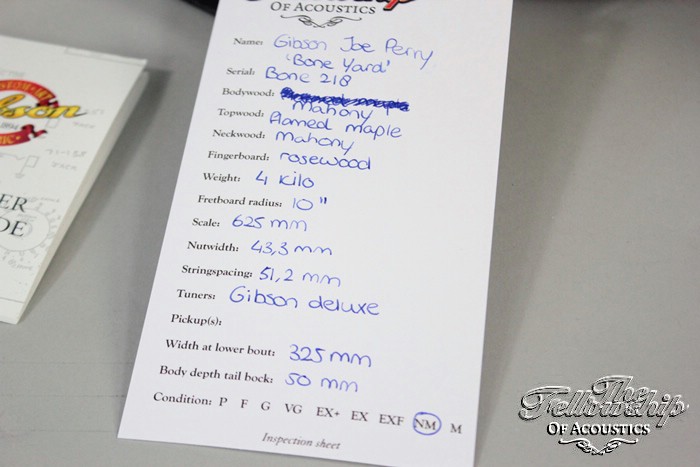 OF ACOUSTICS
Name: Gibson Joe Perry
'Bone Yard'
Serial: Bone 218
Bodywood:
Mahony
Topwood: flamed maple
Neckwood: Mahony
Fingerboard: rosewood
Weight: 4 Kilo
Fretboard radius: 10"
Scale: 625 mm
Nutwidth: 43,3 mm
Stringspacing: 51,2 mm
Tuners: Gibson deluxe
Pickup(s):
Width at lower bout: 325 mm
Body depth tail bock: 50 mm
Condition: P F G VG EX+ EX EXF NM M
Inspection sheet
The
Fellowship
OF ACOUSTICS